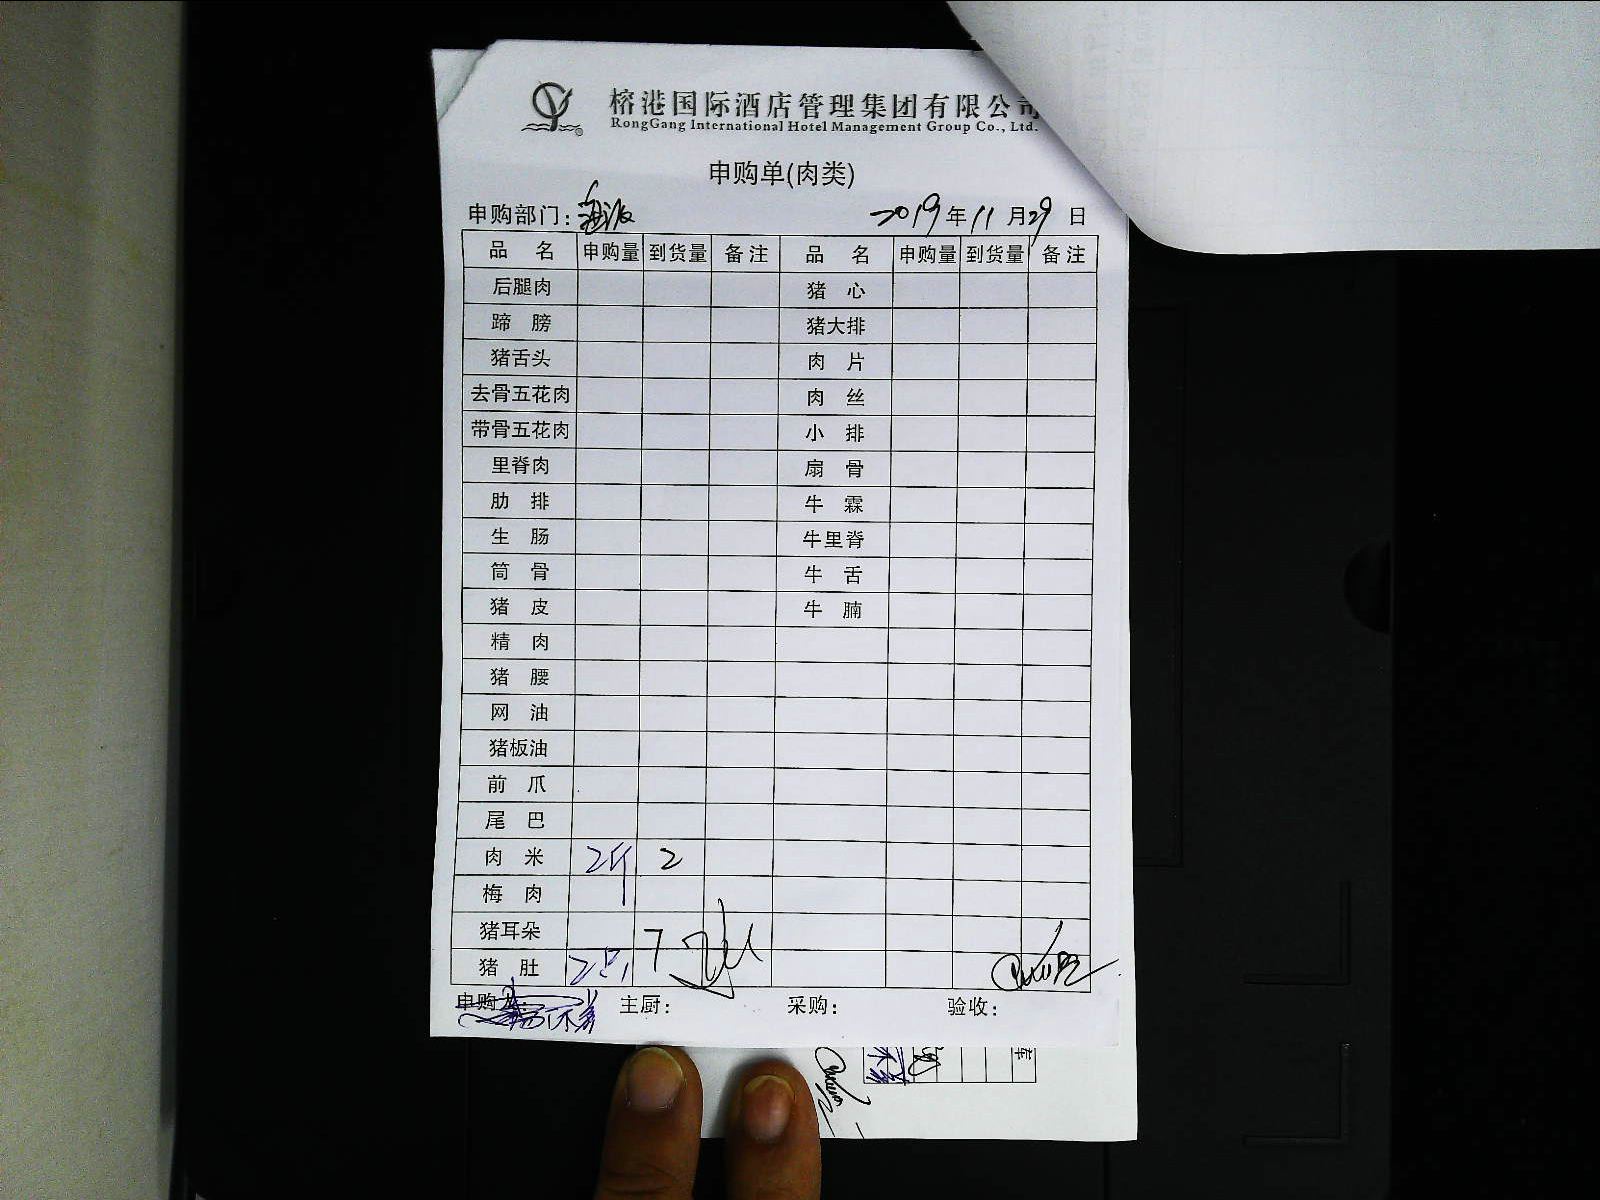 榕港国际酒店管理集团有限公司
RongGang International Hotel Management Group Co., Ltd.
申购单(肉类)
申购部门: 海派 2019年11月29日
品名 申购量 到货量 备注 品名 申购量 到货量 备注
后腿肉 猪心
蹄膀 猪大排
猪舌头 肉片
去骨五花肉 肉丝
带骨五花肉 小排
里脊肉 扇骨
肋排 牛霖
生肠 牛里脊
筒骨 牛舌
猪皮 牛腩
精肉
猪腰
网油
猪板油
前爪
尾巴
肉米 2斤 2
梅肉
猪耳朵
猪肚 2只 7
申购人: 主厨: 采购: 验收: